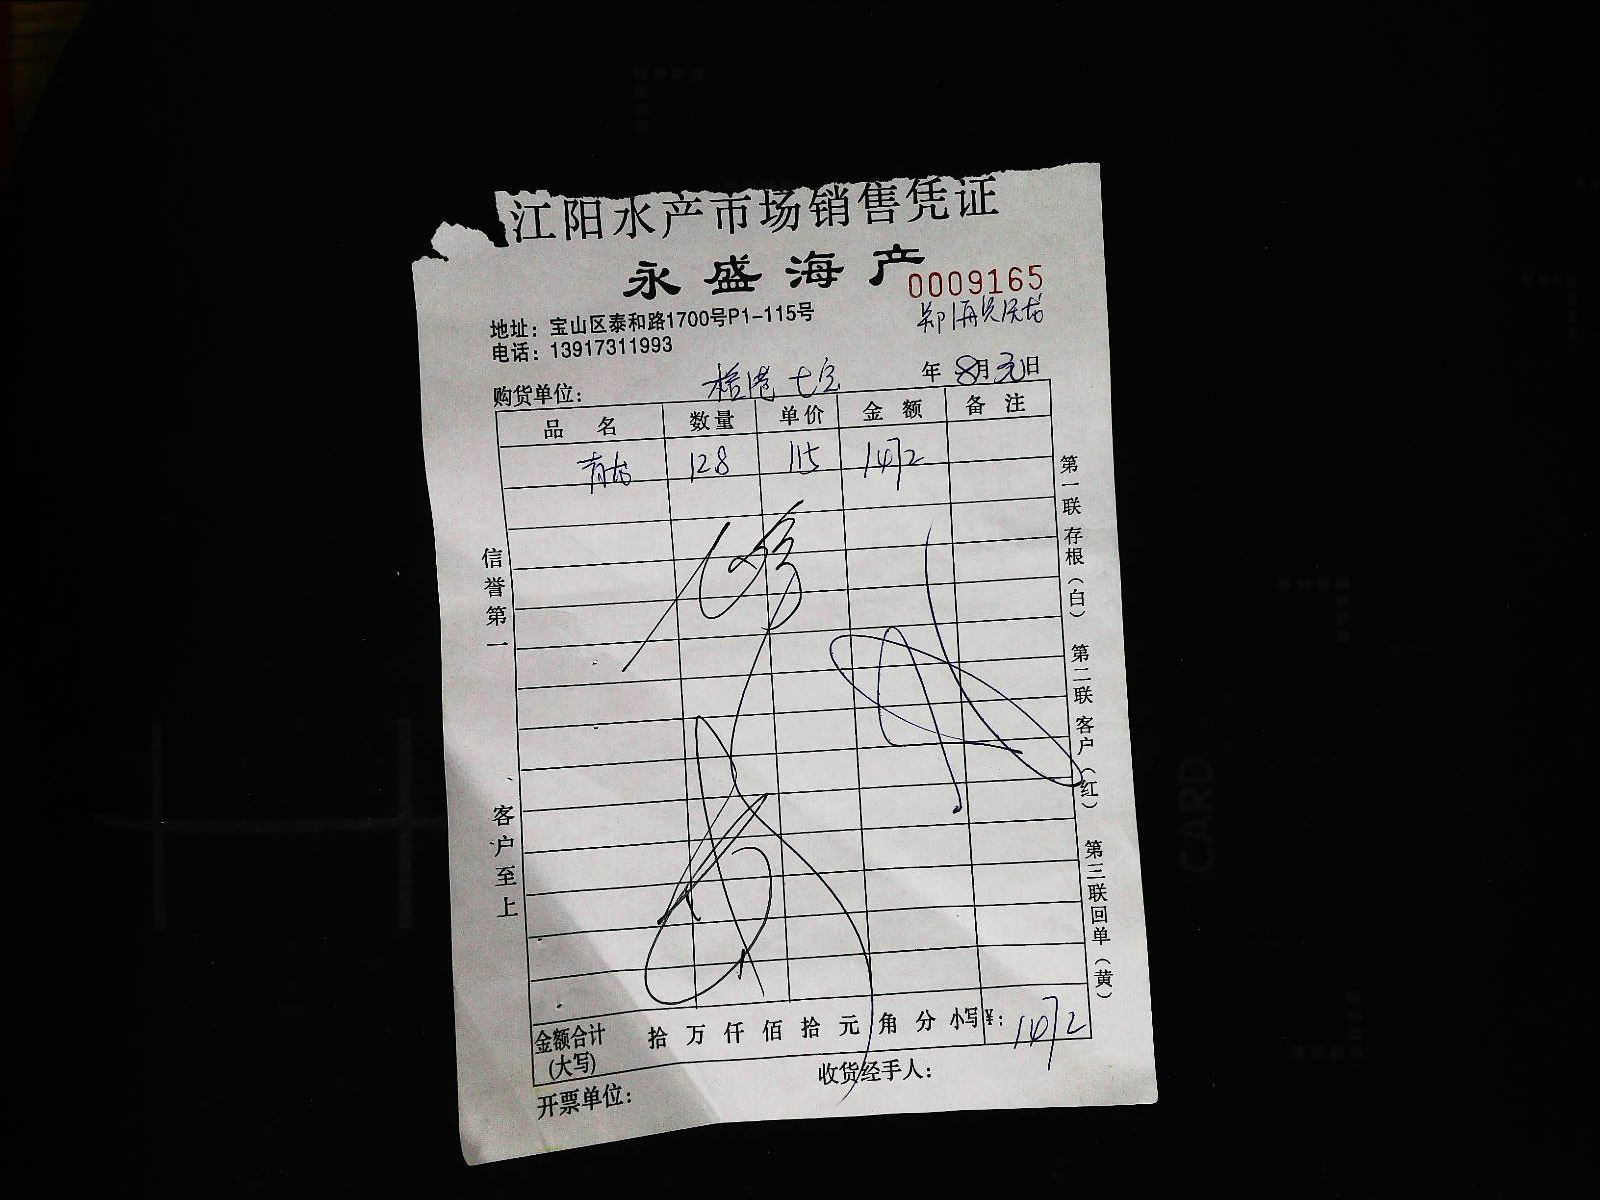 江阳水产市场销售凭证
永盛海产
0009165
地址：宝山区泰和路1700号P1-115号
电话：13917311993
购货单位： 年 8月 日
品 名 数量 单价 金 额 备 注
青龙 128 115 1472
信誉第一
客户至上
第一联 存根（白）
第二联 客户（红）
第三联 回单（黄）
金额合计(大写) 拾 万 仟 佰 拾 元 角 分 小写¥: 1472
收货经手人：
开票单位：